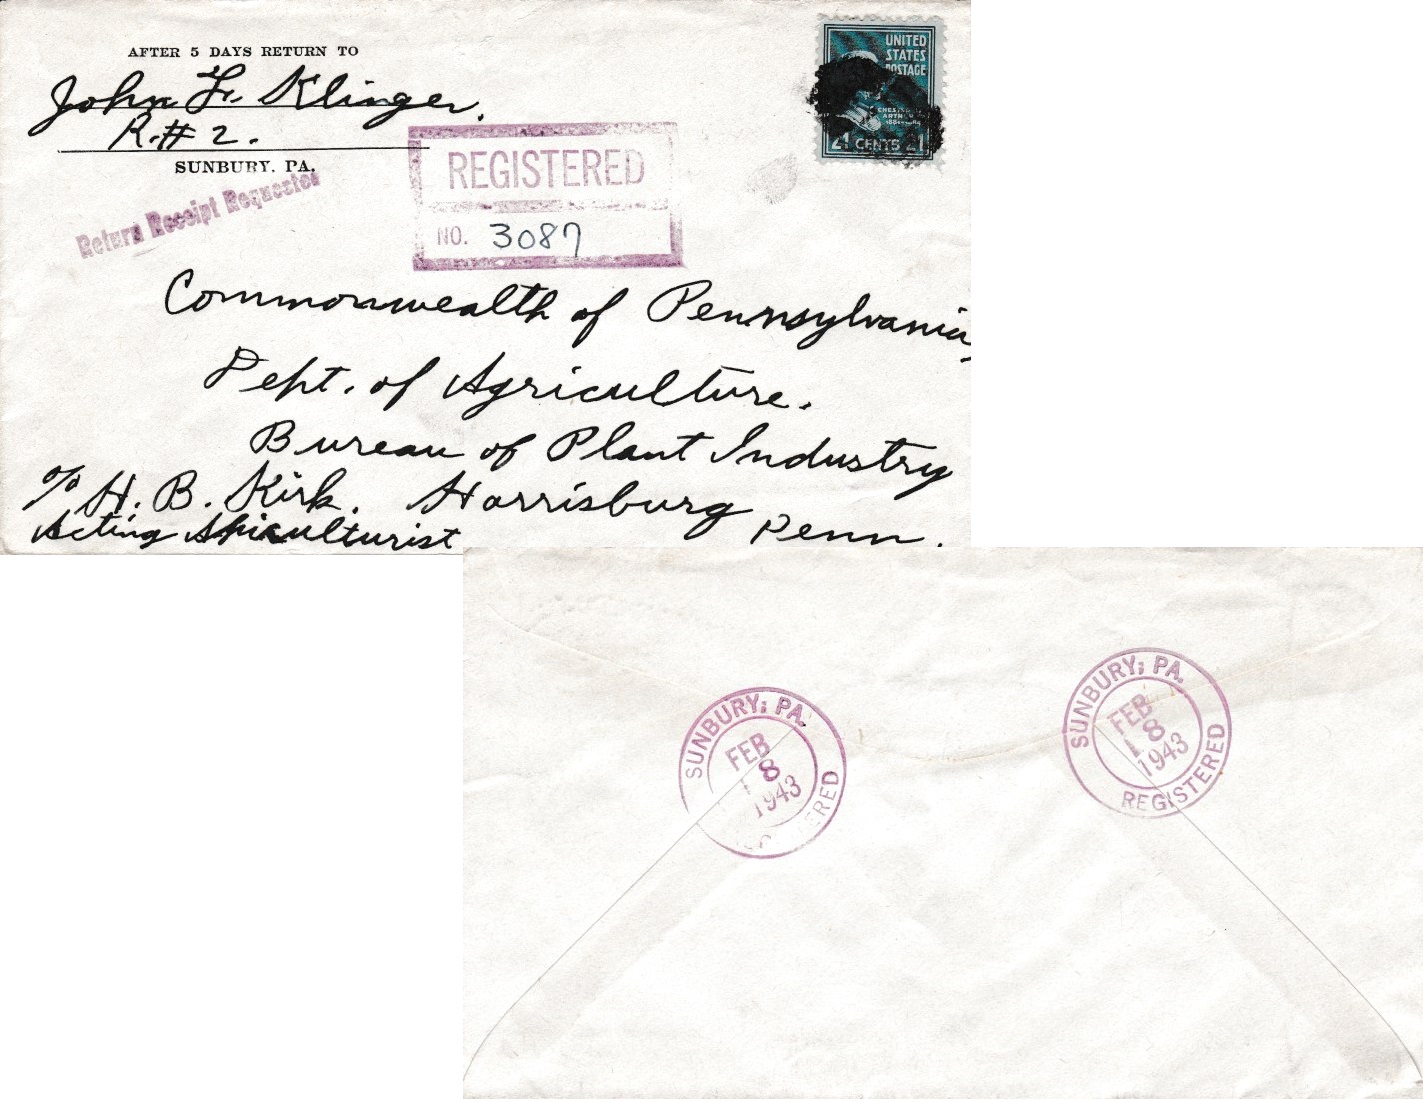 AFTER 5 DAYS RETURN TO
John F. Klinger.
R.#2.
SUNBURY, PA.
Return Receipt Requested
REGISTERED
NO. 3087
UNITED
STATES
POSTAGE
CHESTER
ARTHUR
21 CENTS 21
Commonwealth of Pennsylvania,
Dept. of Agriculture.
Bureau of Plant Industry
c/o H. B. Kirk. Harrisburg
Acting Apiculturist Penn.
SUNBURY, PA.
FEB
8
1943
REGISTERED
SUNBURY, PA.
FEB
8
1943
REGISTERED